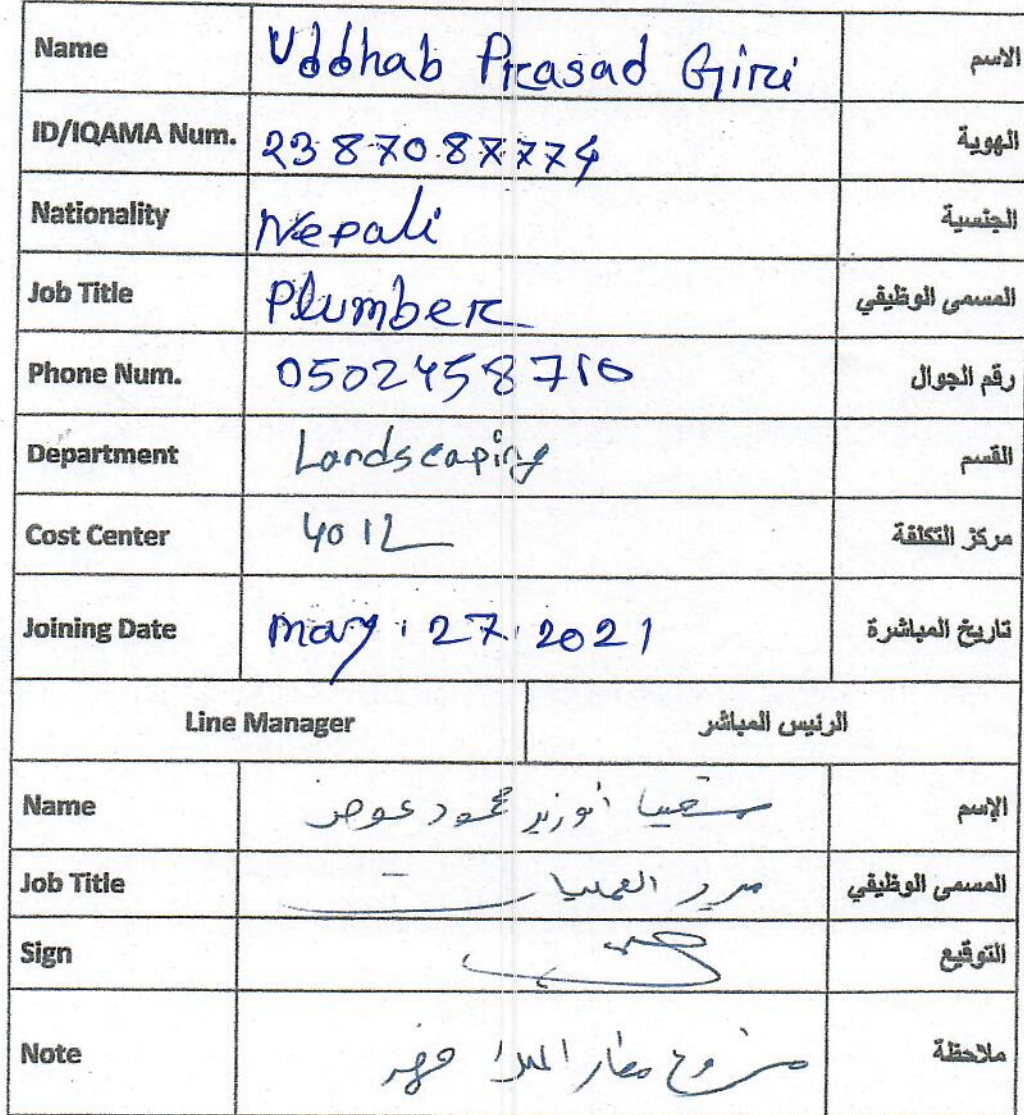 Name Uddhab Prasad Giri الاسم
ID/IQAMA Num. 2387087774 الهوية
Nationality Nepali الجنسية
Job Title Plumber المسمى الوظيفي
Phone Num. 0502458710 رقم الجوال
Department Landscaping القسم
Cost Center 4012 مركز التكلفة
Joining Date may . 27 . 2021 تاريخ المباشرة
Line Manager الرئيس المباشر
Name محمود عوض الإسم
Job Title مدير العمليات المسمى الوظيفي
Sign التوقيع
Note مشروع مطار الملك فهد ملاحظة